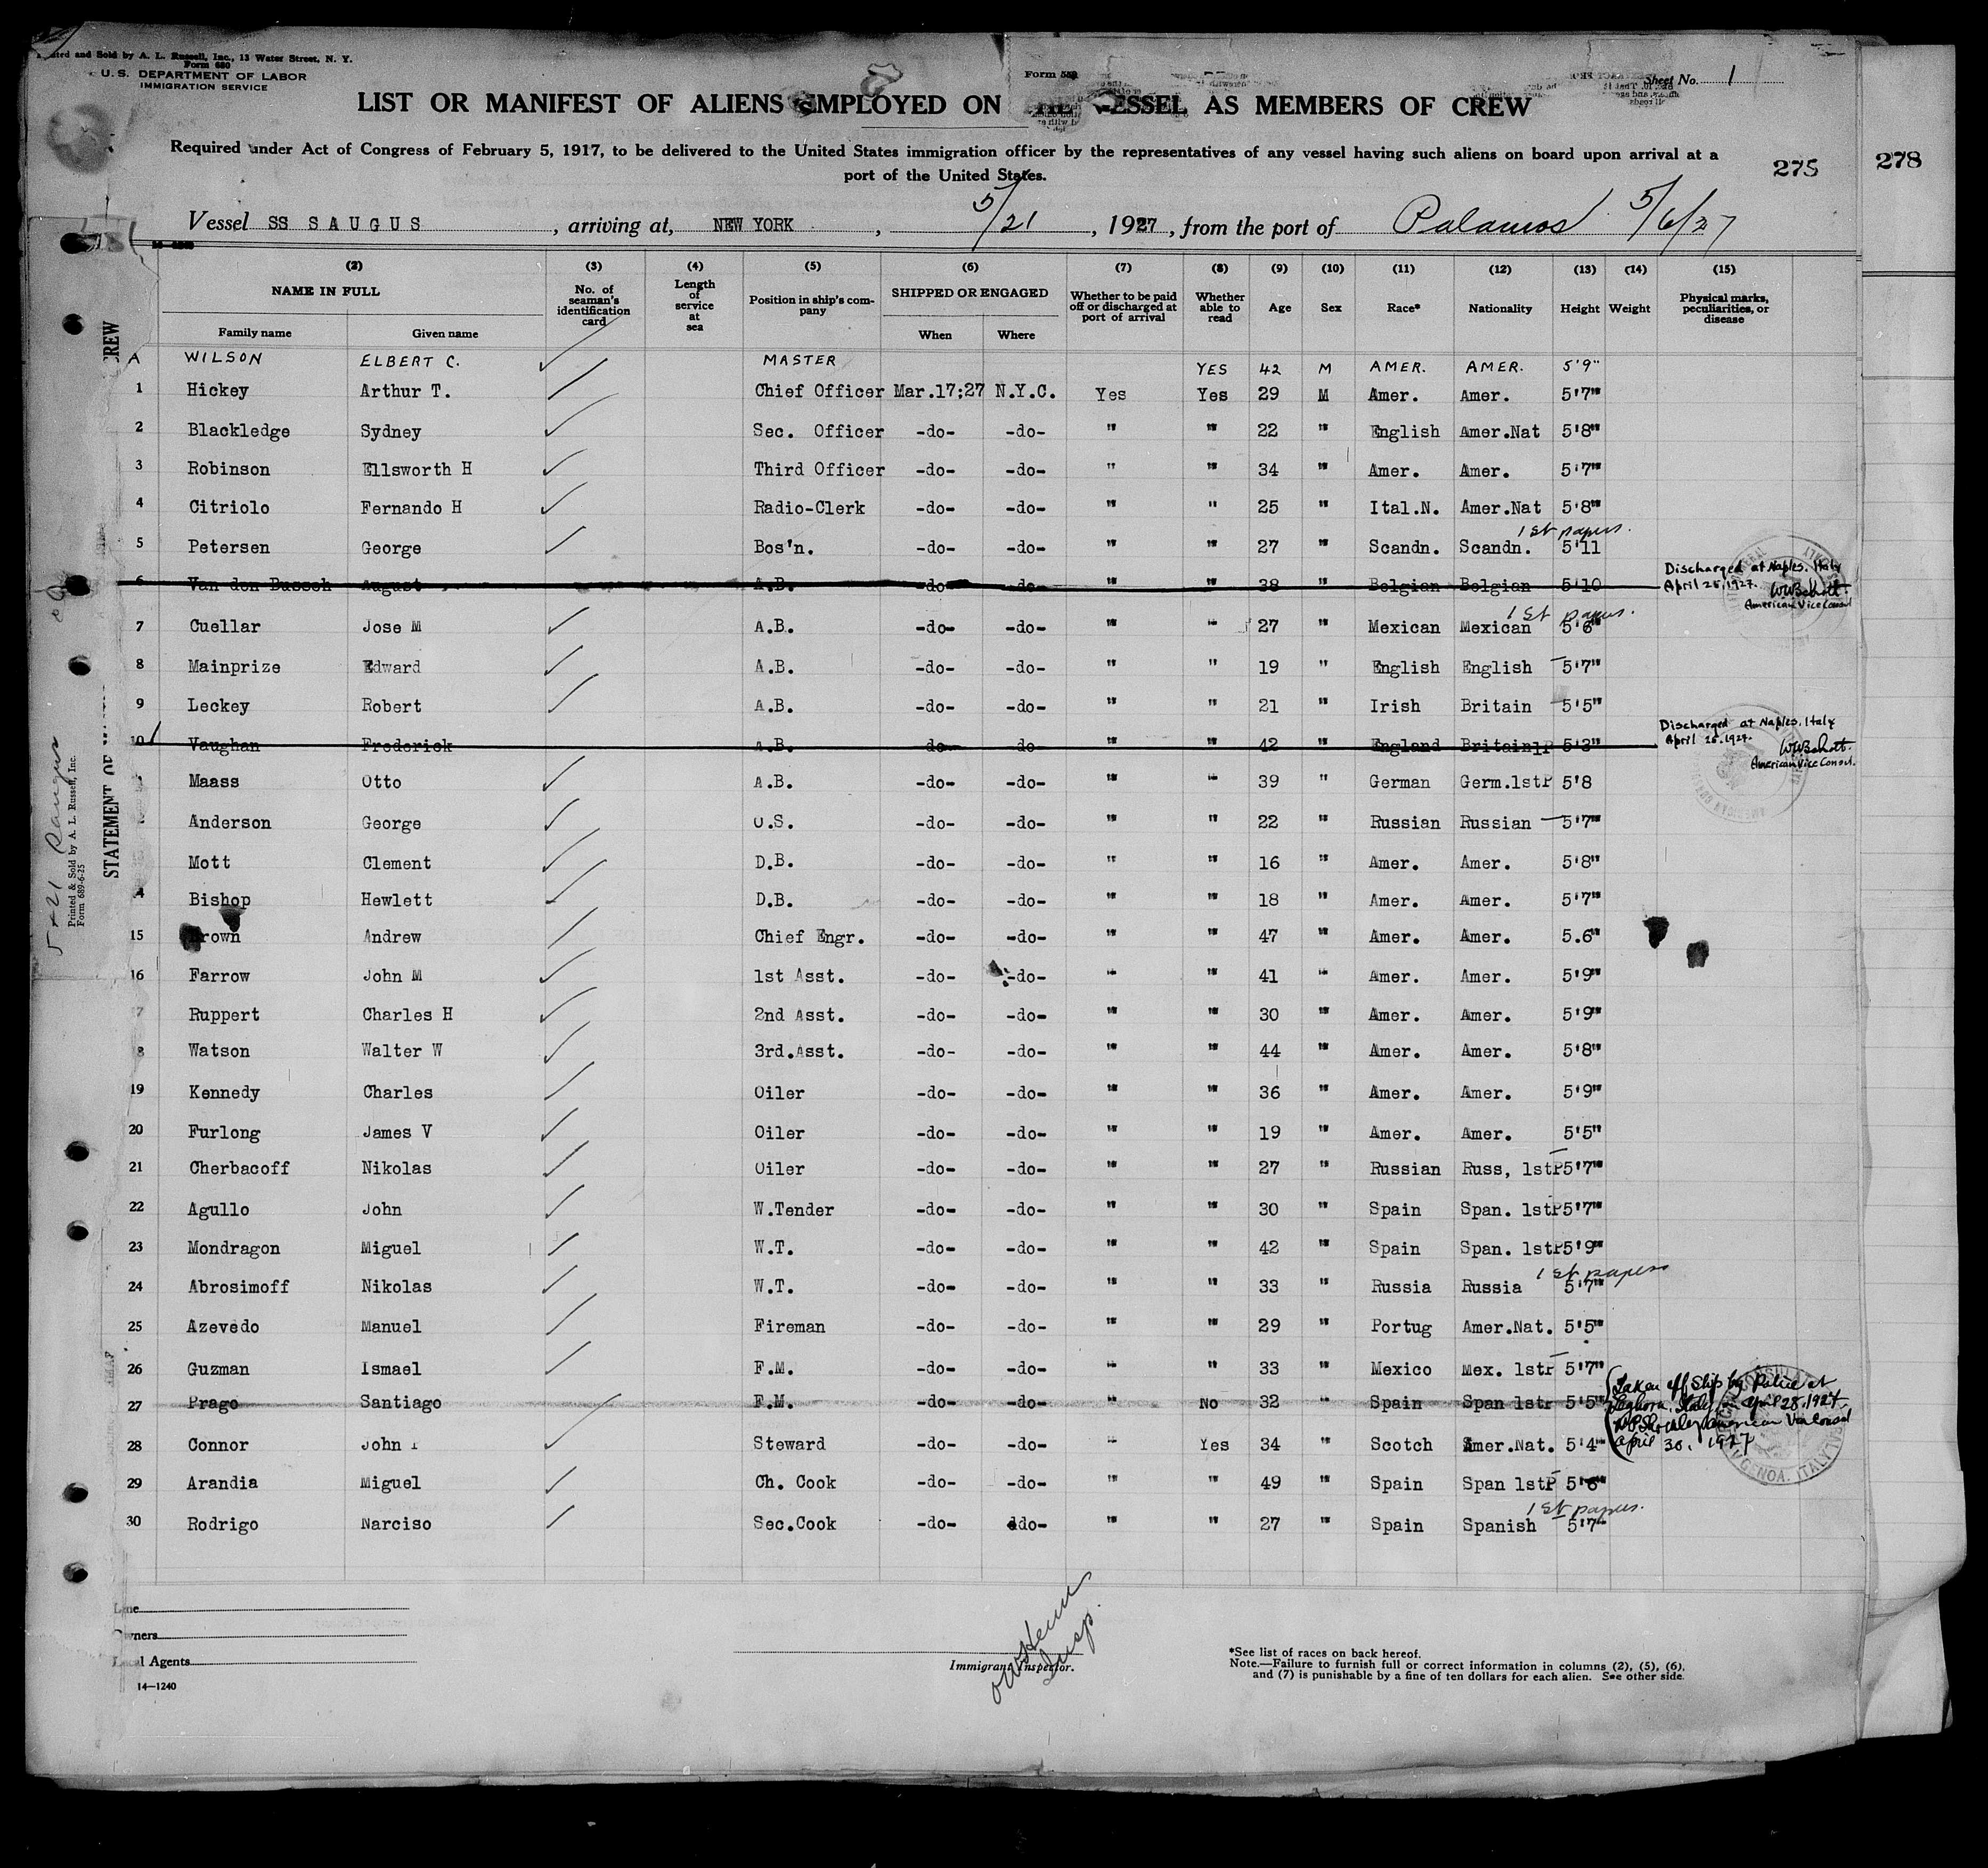 Printed and Sold by A. L. Russell, Inc., 13 Water Street, N. Y.
Form 680
U. S. DEPARTMENT OF LABOR
IMMIGRATION SERVICE
Form 680
Sheet No. 1
LIST OR MANIFEST OF ALIENS EMPLOYED ON THE VESSEL AS MEMBERS OF CREW
Required under Act of Congress of February 5, 1917, to be delivered to the United States immigration officer by the representatives of any vessel having such aliens on board upon arrival at a
port of the United States.
275
278
Vessel SS SAUGUS, arriving at, NEW YORK, 5/21, 1927, from the port of Palamos 5/6/27
(2) (3) (4) (5) (6) (7) (8) (9) (10) (11) (12) (13) (14) (15)
NAME IN FULL No. of seaman's identification card Length of service at sea Position in ship's company SHIPPED OR ENGAGED Whether to be paid off or discharged at port of arrival Whether able to read Age Sex Race* Nationality Height Weight Physical marks, peculiarities, or disease
Family name Given name When Where
A WILSON ELBERT C. MASTER YES 42 M AMER. AMER. 5'9"
1 Hickey Arthur T. Chief Officer Mar.17;27 N.Y.C. Yes Yes 29 M Amer. Amer. 5'7"
2 Blackledge Sydney Sec. Officer -do- -do- " " 22 " English Amer.Nat 5'8"
3 Robinson Ellsworth H Third Officer -do- -do- " " 34 " Amer. Amer. 5'7"
4 Citriolo Fernando H Radio-Clerk -do- -do- " " 25 " Ital.N. Amer.Nat 5'8"
1st papers.
5 Petersen George Bos'n. -do- -do- " " 27 " Scandn. Scandn. 5'11
6 Van den Bussch August A.B. -do- -do- " " 38 " Belgian Belgian 5'10 Discharged at Naples, Italy
April 25, 1927.
American Vice Consul
1st papers.
7 Cuellar Jose M A.B. -do- -do- " " 27 " Mexican Mexican 5'6"
8 Mainprize Edward A.B. -do- -do- " " 19 " English English 5'7"
9 Leckey Robert A.B. -do- -do- " " 21 " Irish Britain 5'5"
10 Vaughan Frederick A.B. do do " " 42 " England Britain1P 5'3" Discharged at Naples, Italy
April 25, 1927.
American Vice Consul.
Maass Otto A.B. -do- -do- " " 39 " German Germ.1stP 5'8
Anderson George O.S. -do- -do- " " 22 " Russian Russian 5'7"
Mott Clement D.B. -do- -do- " " 16 " Amer. Amer. 5'8"
4 Bishop Hewlett D.B. -do- -do- " " 18 " Amer. Amer. 5'7"
15 Brown Andrew Chief Engr. -do- -do- " " 47 " Amer. Amer. 5.6"
16 Farrow John M 1st Asst. -do- -do- " " 41 " Amer. Amer. 5'9"
7 Ruppert Charles H 2nd Asst. -do- -do- " " 30 " Amer. Amer. 5'9"
8 Watson Walter W 3rd.Asst. -do- -do- " " 44 " Amer. Amer. 5'8"
19 Kennedy Charles Oiler -do- -do- " " 36 " Amer. Amer. 5'9"
20 Furlong James V Oiler -do- -do- " " 19 " Amer. Amer. 5'5"
21 Cherbacoff Nikolas Oiler -do- -do- " " 27 " Russian Russ, 1stP 5'7"
22 Agullo John W.Tender -do- -do- " " 30 " Spain Span. 1stP 5'7"
23 Mondragon Miguel W.T. -do- -do- " " 42 " Spain Span. 1stP 5'9"
1st papers
24 Abrosimoff Nikolas W.T. -do- -do- " " 33 " Russia Russia 5'7"
25 Azevedo Manuel Fireman -do- -do- " " 29 " Portug Amer.Nat. 5'5"
26 Guzman Ismael F.M. -do- -do- " " 33 " Mexico Mex. 1stP 5'7"
27 Prago Santiago F.M. -do- -do- " No 32 " Spain Span 1stP 5'5" Taken off Ship by Police at
Leghorn, Italy, April 28, 1927.
American Vice Consul
April 30, 1927
28 Connor John Steward -do- -do- " Yes 34 " Scotch Amer.Nat. 5'4"
29 Arandia Miguel Ch. Cook -do- -do- " " 49 " Spain Span 1stP 5'6"
1st papers.
30 Rodrigo Narciso Sec.Cook -do- ddo- " " 27 " Spain Spanish 5'7"
GENOA, ITALY
Line
Owners
Local Agents
14—1240
Immigrant Inspector.
Insp.
*See list of races on back hereof.
Note.—Failure to furnish full or correct information in columns (2), (5), (6),
and (7) is punishable by a fine of ten dollars for each alien. See other side.
5-21 Saugus
Printed & Sold by A. L. Russell, Inc.
Form 689-6-25
STATEMENT OF
CREW